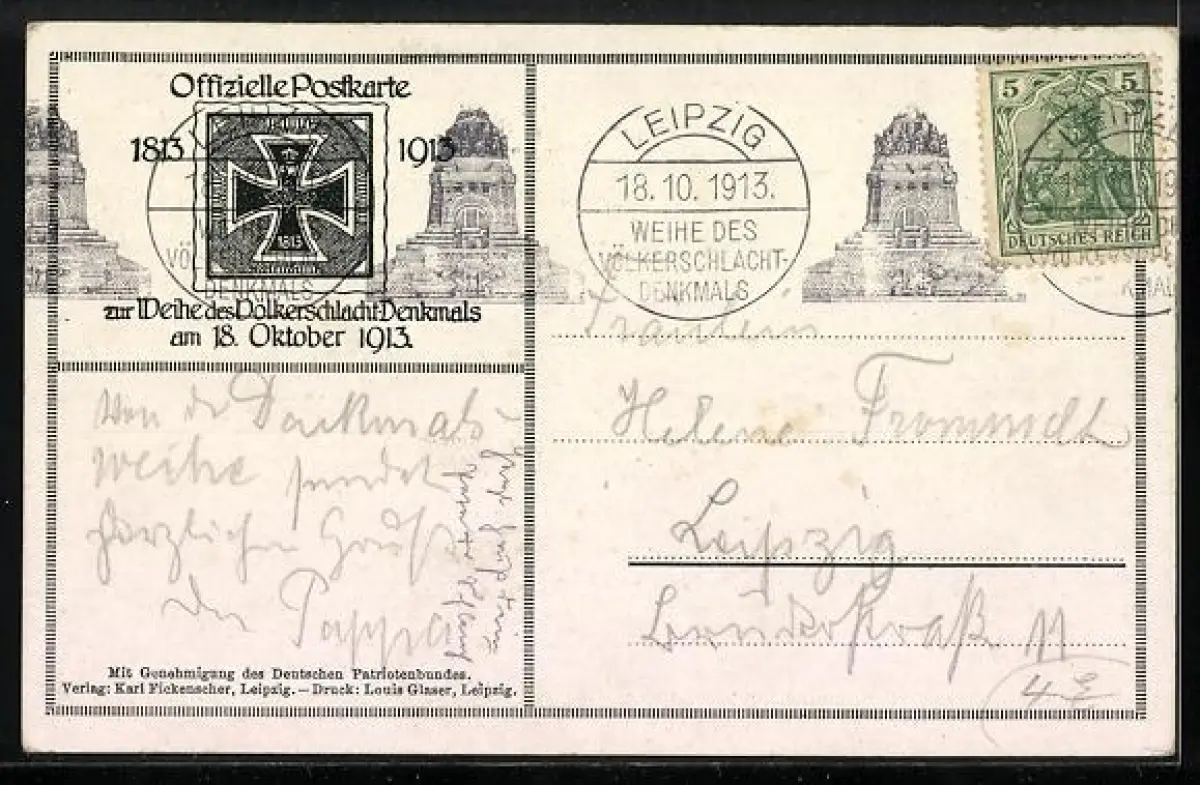 Offizielle Postkarte
1813 1913
1813
zur Weihe des Völkerschlacht-Denkmals
am 18. Oktober 1913.
LEIPZIG
18.10.1913.
WEIHE DES
VÖLKERSCHLACHT-
DENKMALS
5 5
DEUTSCHES REICH
Von der Denkmals-
weihe sendet
herzlichen Gruß
der
Fräulein
Helene
Leipzig
11
4 E
Mit Genehmigung des Deutschen Patriotenbundes.
Verlag: Karl Fickenscher, Leipzig. — Druck: Louis Glaser, Leipzig.